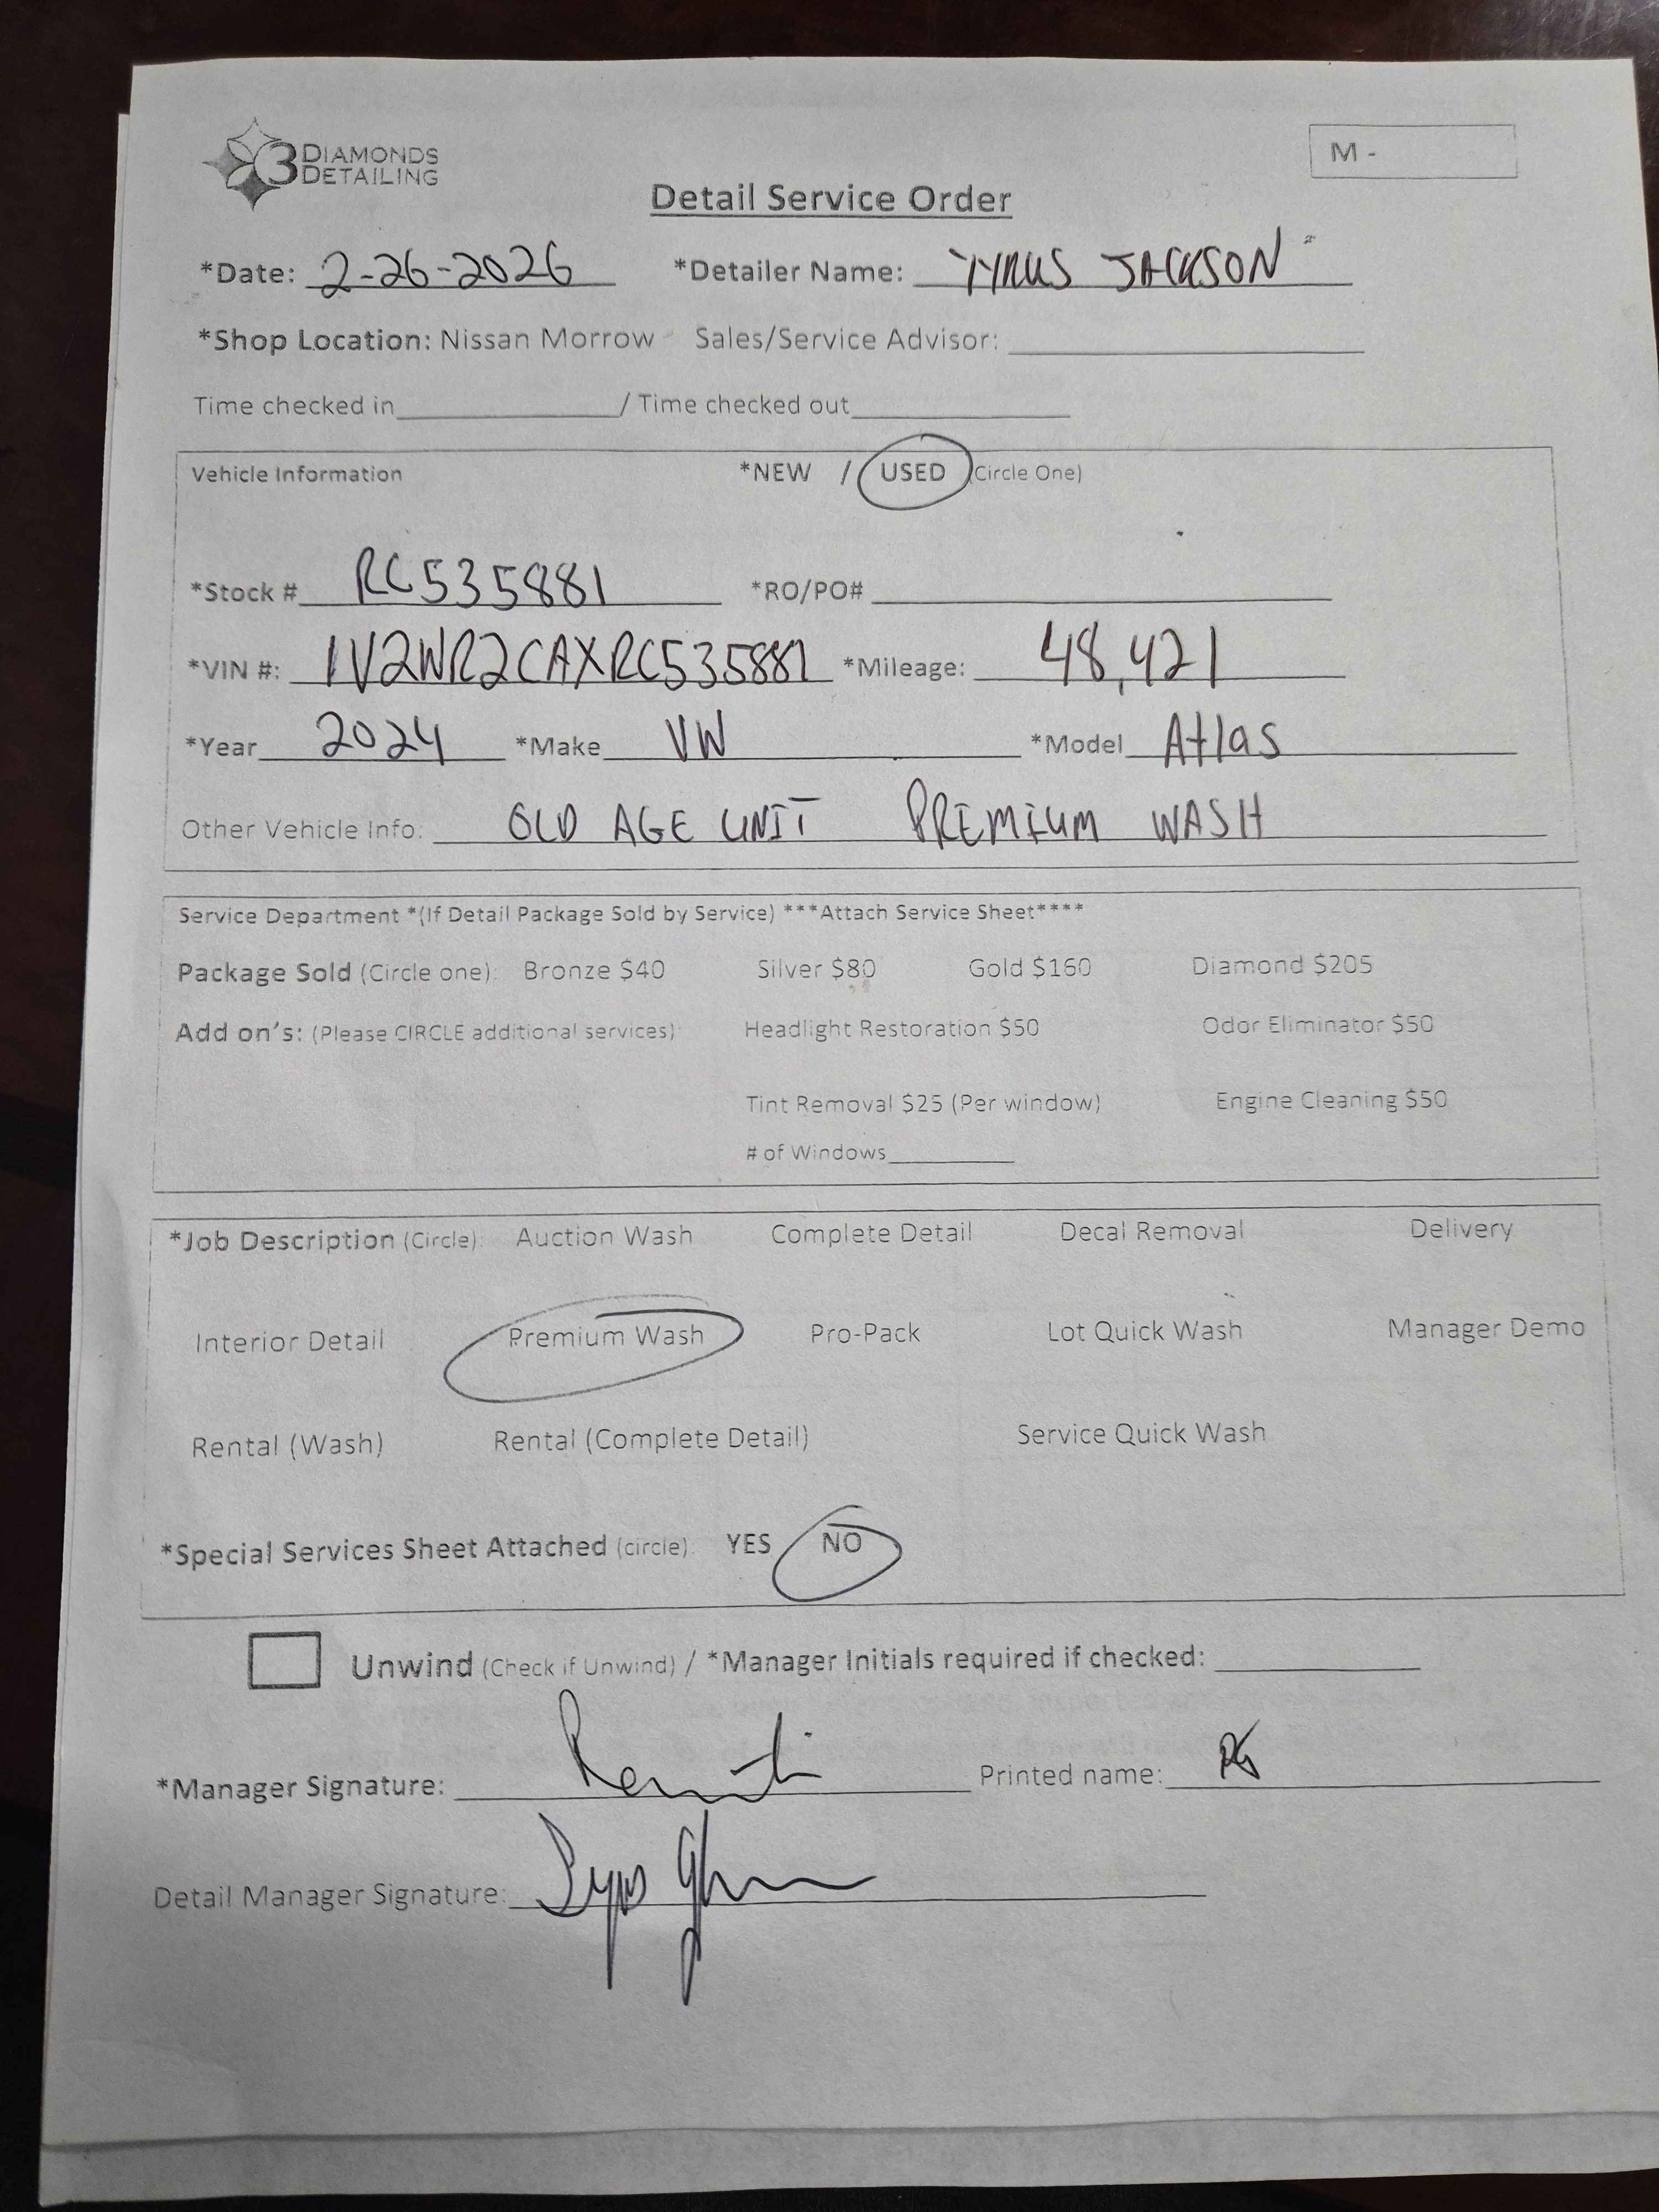 3 DIAMONDS DETAILING
M -
Detail Service Order
*Date: 2-26-2026 *Detailer Name: TYRUS JACKSON
*Shop Location: Nissan Morrow Sales/Service Advisor:
Time checked in / Time checked out
Vehicle Information *NEW / USED (Circle One)
*Stock # RC535881 *RO/PO#
*VIN #: 1V2WR2CAXRC535881 *Mileage: 48,421
*Year 2024 *Make VW *Model Atlas
Other Vehicle Info: OLD AGE UNIT PREMIUM WASH
Service Department *(If Detail Package Sold by Service) ***Attach Service Sheet****
Package Sold (Circle one): Bronze $40 Silver $80 Gold $160 Diamond $205
Add on's: (Please CIRCLE additional services) Headlight Restoration $50 Odor Eliminator $50
Tint Removal $25 (Per window) Engine Cleaning $50
# of Windows
*Job Description (Circle): Auction Wash Complete Detail Decal Removal Delivery
Interior Detail Premium Wash Pro-Pack Lot Quick Wash Manager Demo
Rental (Wash) Rental (Complete Detail) Service Quick Wash
*Special Services Sheet Attached (circle): YES NO
Unwind (Check if Unwind) / *Manager Initials required if checked:
*Manager Signature: Printed name:
Detail Manager Signature: